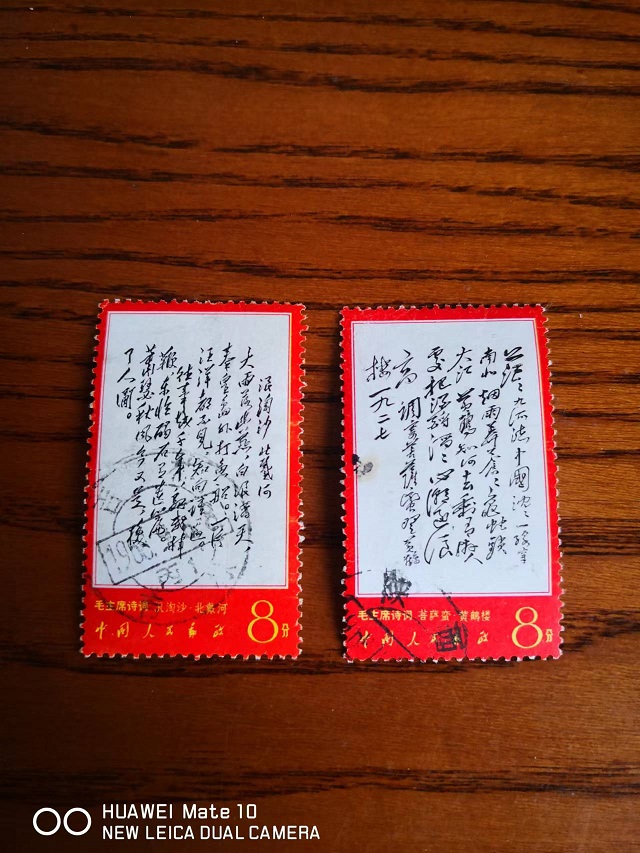 浪淘沙 北戴河
大雨落幽燕,白浪滔天,
秦皇岛外打鱼船。一片
汪洋都不见,知向谁边。
往事越千年,魏武挥
鞭,东临碣石有遗篇。
萧瑟秋风今又是,换
了人间。
毛主席诗词 浪淘沙·北戴河
中国人民邮政 8分
茫〻九派流中國 沈〻一線穿
南北 烟雨莽蒼〻 龜蛇鎖
大江 黄鹤知何去 剩有游人
處 把酒酹滔〻 心潮逐浪
高 調寄菩薩蛮 登黄鹤
楼 一九二七
毛主席诗词 菩萨蛮·黄鹤楼
中国人民邮政 8分
HUAWEI Mate 10
NEW LEICA DUAL CAMERA